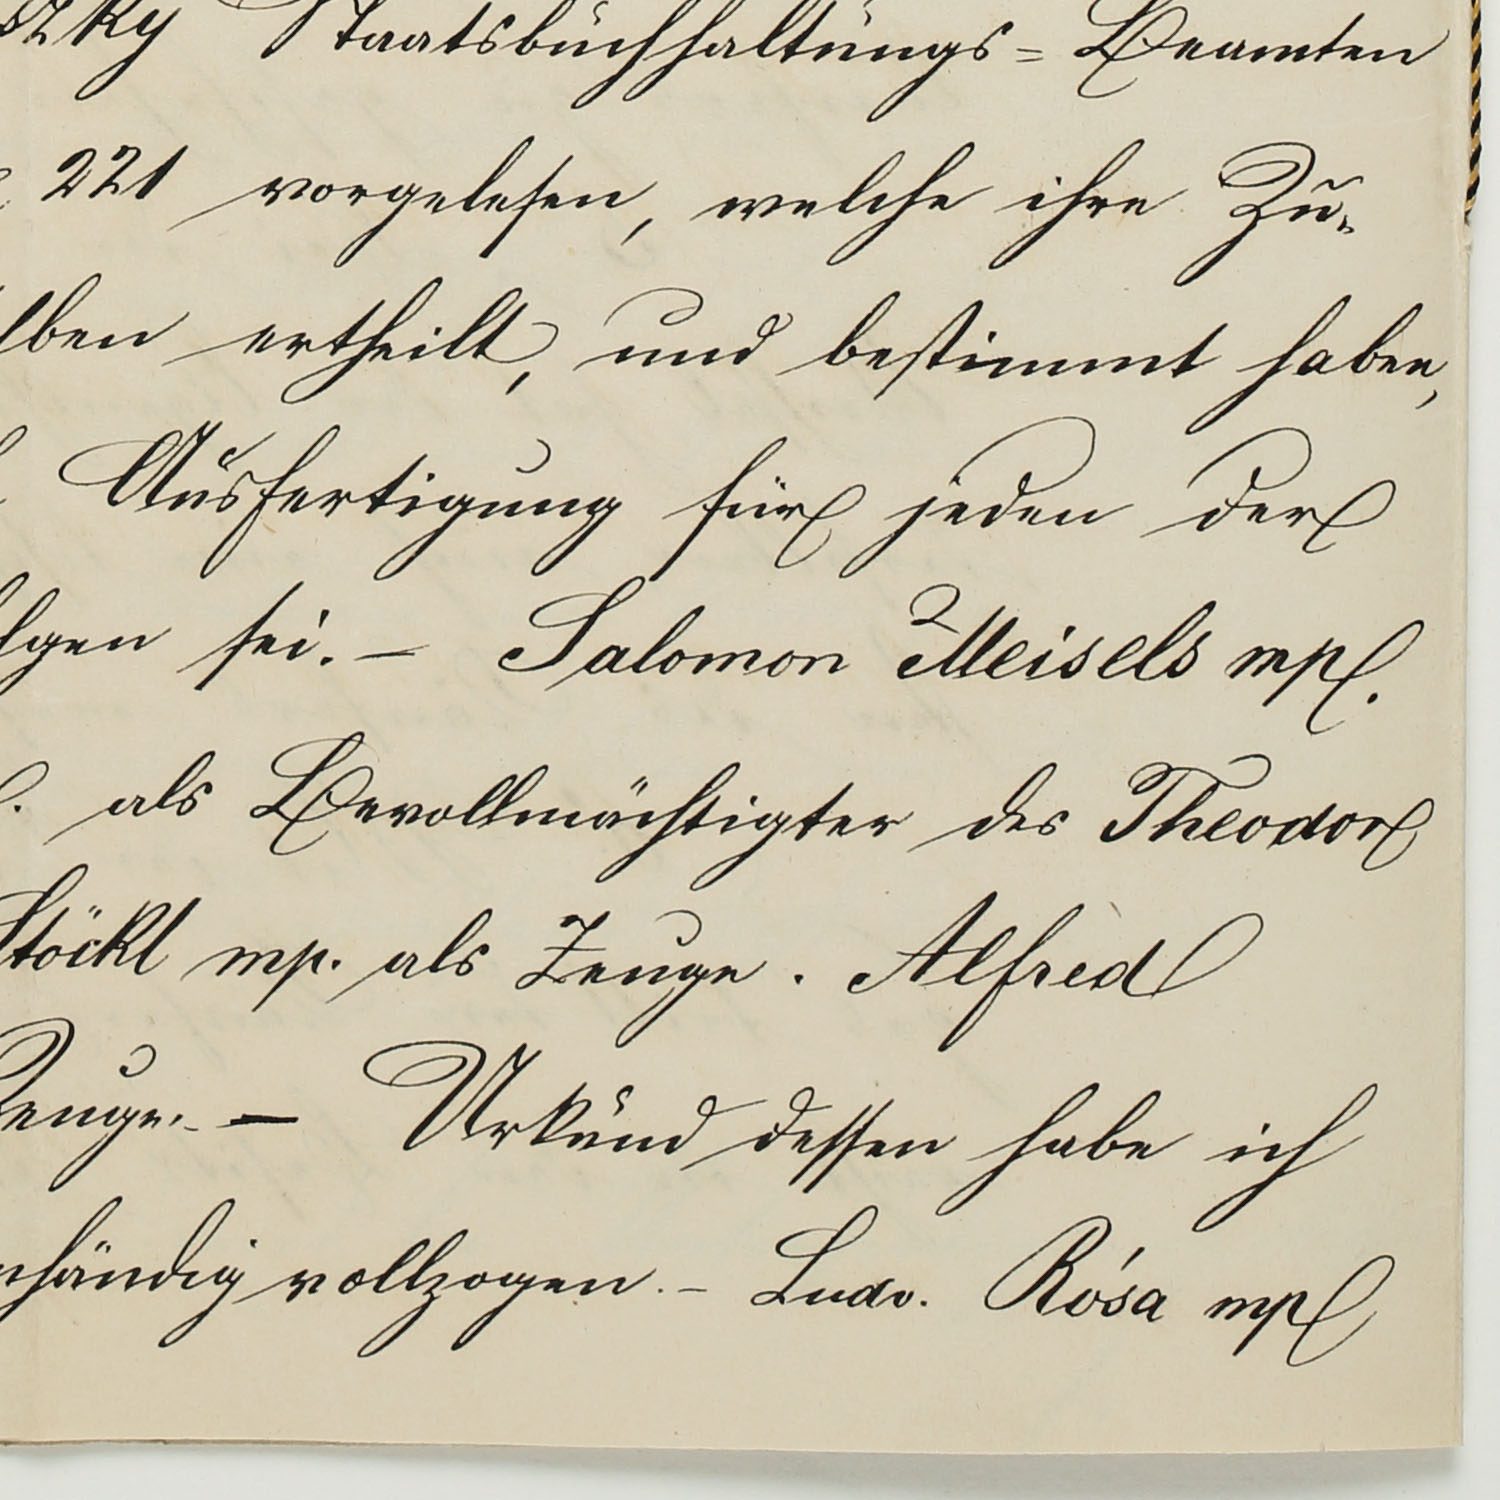 szky Staatsbuchhaltungs=Beamten
221 vorgelesen, welche ihre Zu-
lben ertheilt, und bestimmt haben,
Ausfertigung für jeden der
lgen sei. – Salomon Meisels mp.
als Bevollmächtigter des Theodor
Stöckl mp. als Zeuge. Alfred
Zeuge. – Urkund dessen habe ich
nhändig vollzogen. – Ludv. Rósa mp